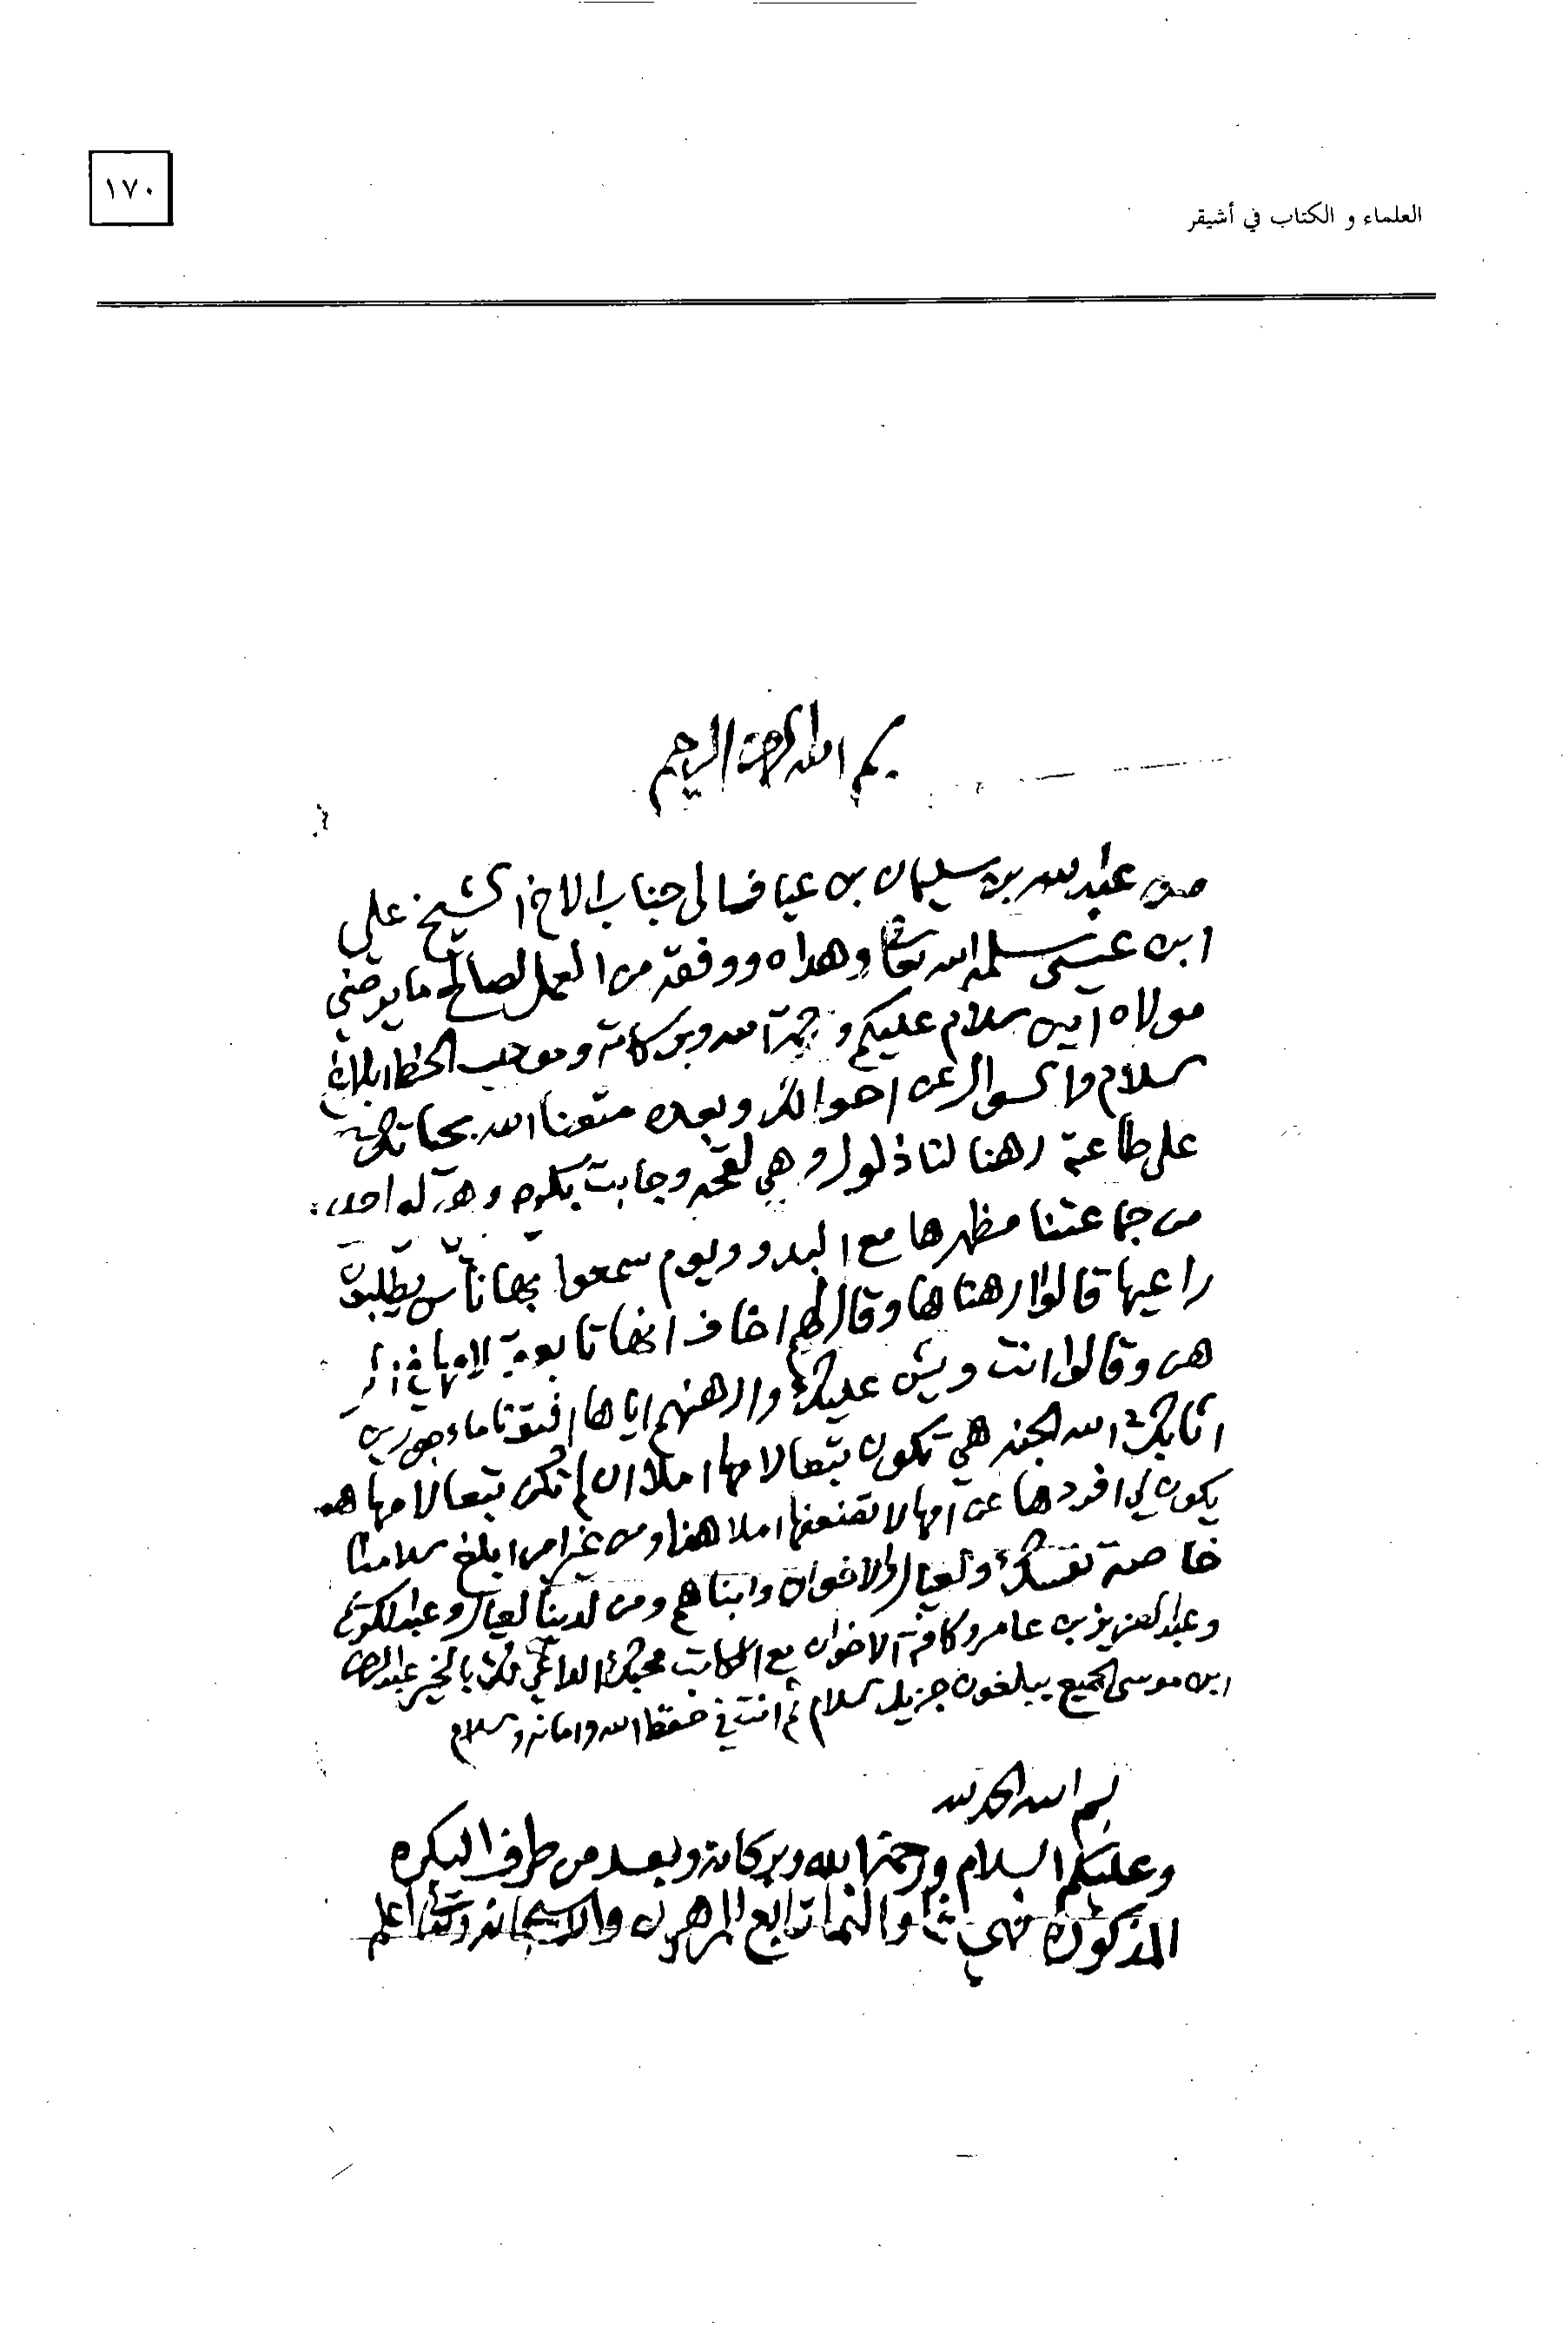 ١٧٠
العلماء و الكتاب في أشيقر
بسم الله الرحمن الرحيم
من عبد الله بن سليمان بن عياف الى جناب الاخ الشيخ علي
ابن عيسى سلمه الله تعالى وهداه ووفقه من العمل الصالح ما يرضي
مولاه آمين سلام عليكم ورحمة الله وبركاته وموجب الخط ابلاغ
السلام والسوال عن احوالك وبعده متعنا الله بحياتك
على طاعته رهنا لنا ذلول وهي لقحه وجابت بكره و له احد
من جماعتنا مظهرها مع البدو ويوم سمعوا بها ناس يطلبون
راعيها قالوا ارهناها وقال لهم اخاف انها تابعة لامها في
هن وقالوا انت ويش عليك وارهنهم اياها افتونا ماجورين
اثابك الله الجنه هي تكون تبعا لامها املا ان لم تكن تبعا لامها
يكون لي افردها عن امها لا تمنعها املا هذا ومن غير امر ابلغ سلامنا
خاصة نفسك والعيال والاخوان وابناهم ومن لدينا العيال وعبد الكريم
وعبد العزيز بن عامر وكافة الاخوان مع الكاتب محبك الداعي لك بالخير عبد الرحمن
ابن موسى الجميع يبلغون جزيل السلام ثم انت في حفظ الله وامانه والسلام
بسم الله الحمد لله
وعليكم السلام ورحمة الله وبركاته وبعد من طرف البكره
المذكوره فهي نما والنما تابع للمرهون والله سبحانه وتعالى اعلم